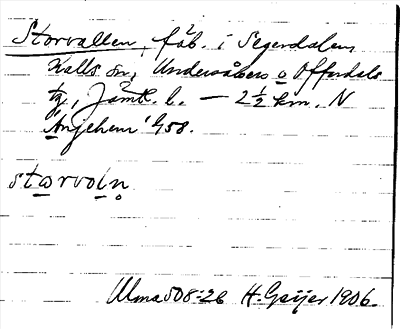 Storvallen, fäb. i Segerdalen,
Kalls sn, Undersåkers o Offerdals
tg., Jämtl. l. — 2½ km. N
Anjehem 958.
stɷrvoln̥
Ulma 508:26 H. Geijer 1906.